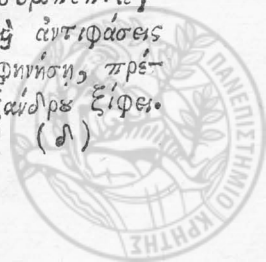 ἀντιφάσεις
φηνήσῃ, πρέ-
ξάνδρου ξίφει.
(δ)
ΠΑΝΕΠΙΣΤΗΜΙΟ ΚΡΗΤΗΣ